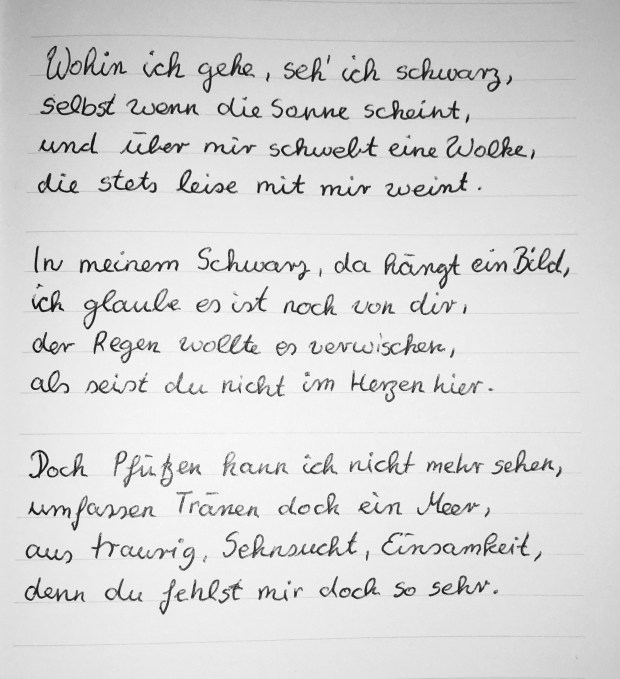 Wohin ich gehe, seh' ich schwarz,
selbst wenn die Sonne scheint,
und über mir schwebt eine Wolke,
die stets leise mit mir weint.
In meinem Schwarz, da hängt ein Bild,
ich glaube es ist noch von dir,
der Regen wollte es verwischen,
als seist du nicht im Herzen hier.
Doch Pfützen kann ich nicht mehr sehen,
umfassen Tränen doch ein Meer,
aus traurig, Sehnsucht, Einsamkeit,
denn du fehlst mir doch so sehr.